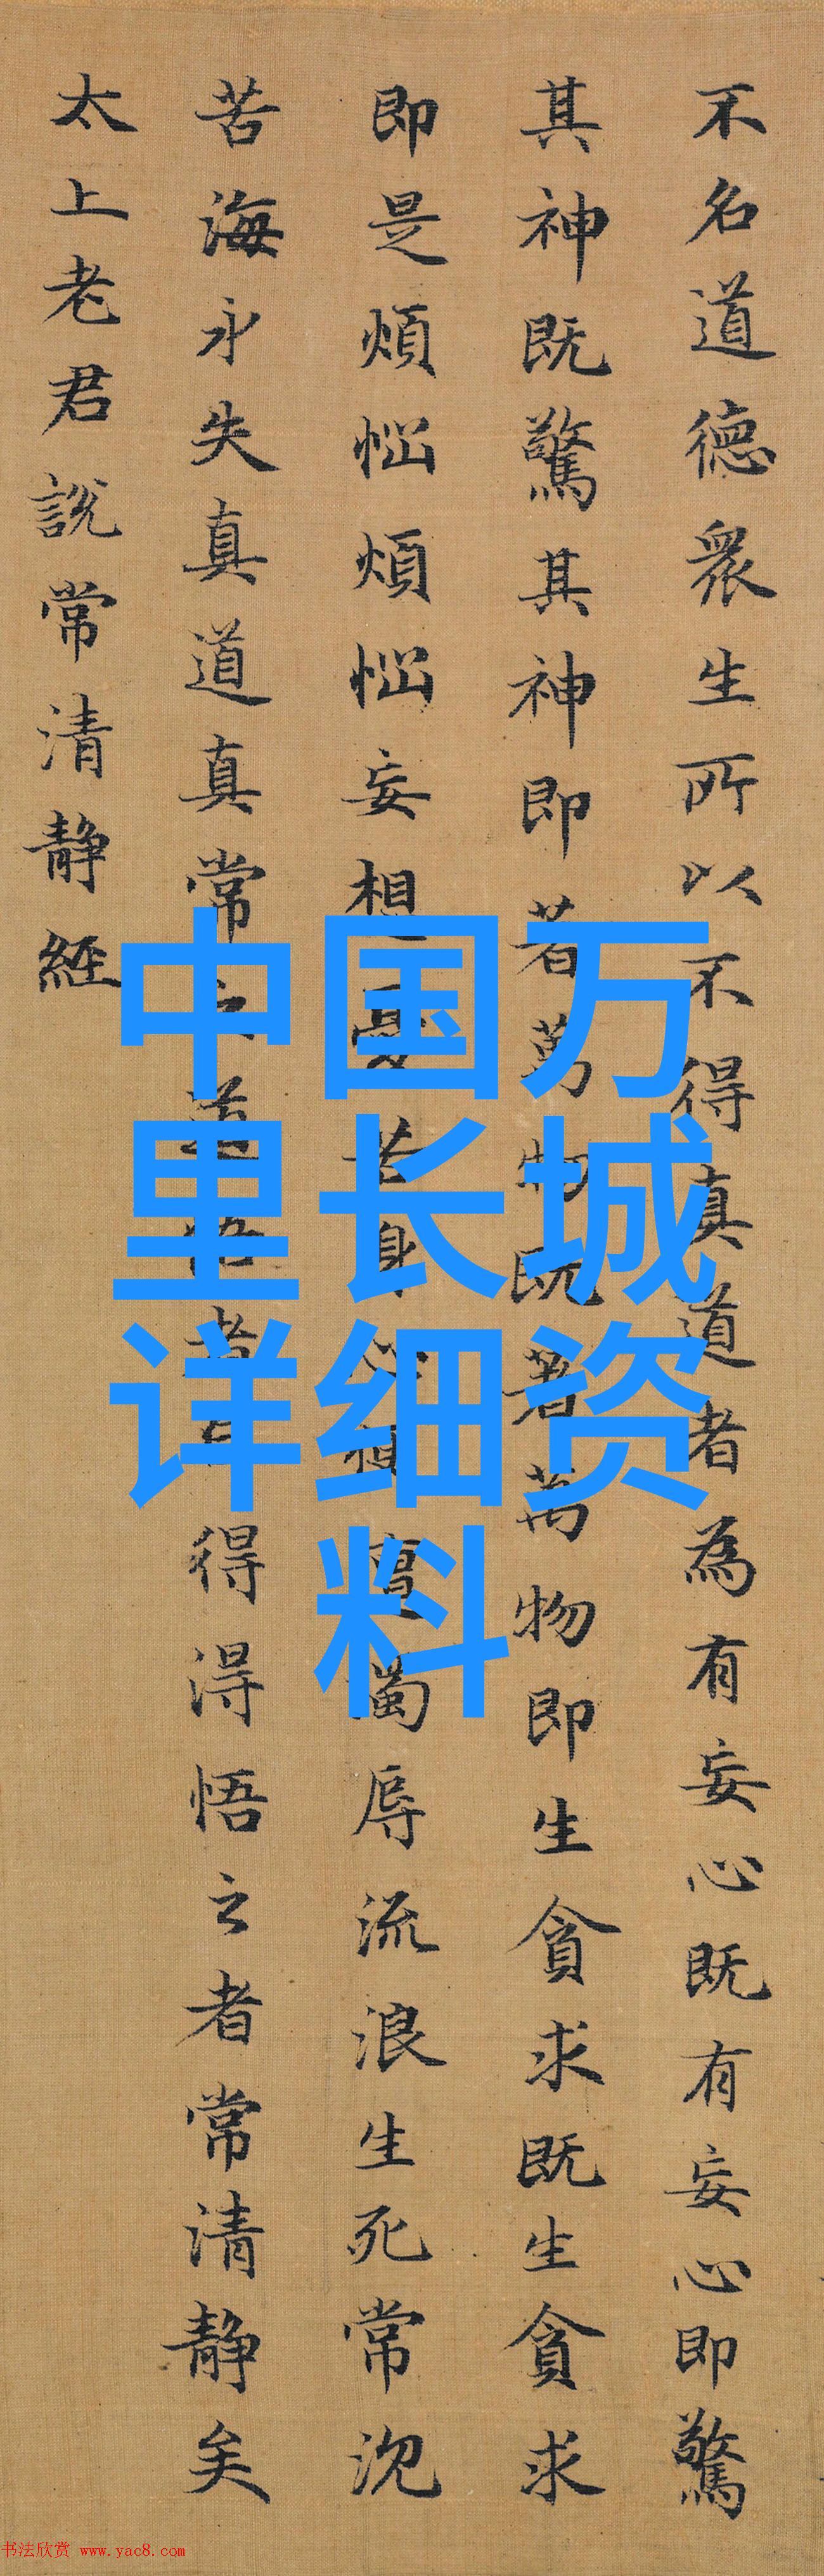 不名道德眾生所以不得真道者為有妄心既有妄心即驚
其神既驚其神即著萬物既著萬物即生貪求既生貪求
即是煩惱煩惱妄想憂苦身心遭濁辱流浪生死常沉
苦海永失真道真常之道悟者自得得悟之者常清静矣
太上老君說常清静經
中国万
里长城
详细资
料
书法欣赏 www.yac8.com